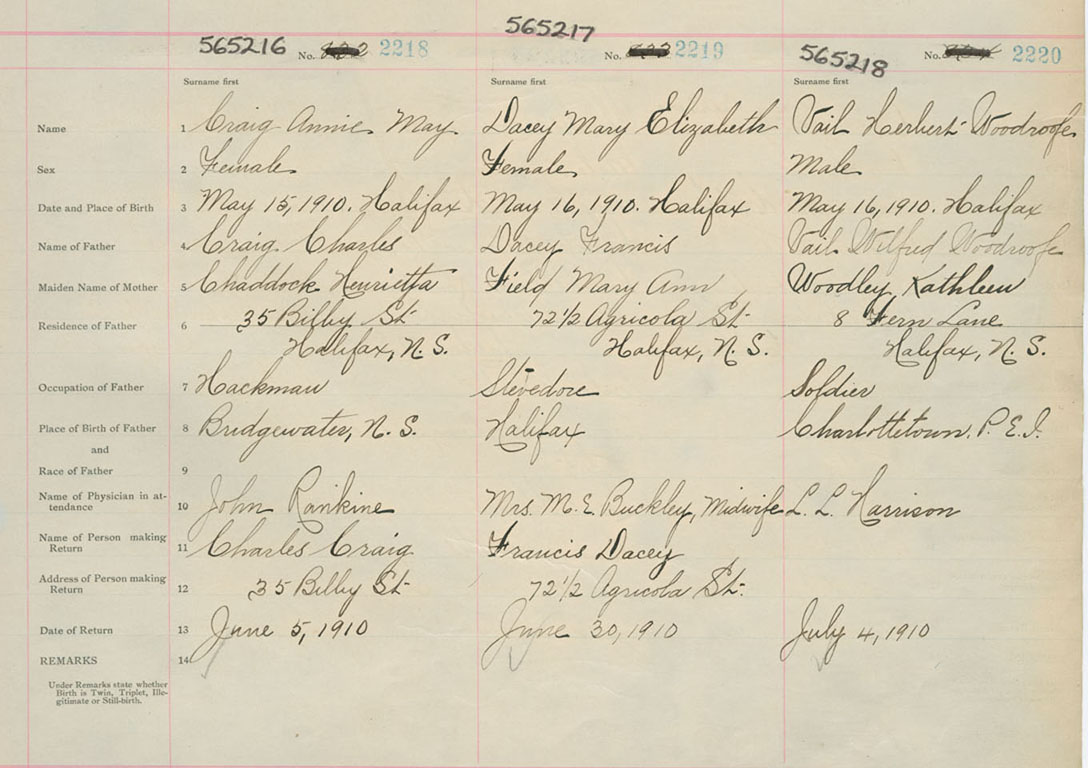 565216 No. 2218 565217 No. 2219 565218 No. 2220
Surname first Surname first Surname first
Name 1 Craig Annie May Dacey Mary Elizabeth Vail Herbert Woodroofe
Sex 2 Female Female Male
Date and Place of Birth 3 May 15, 1910. Halifax May 16, 1910. Halifax May 16, 1910. Halifax
Name of Father 4 Craig Charles Dacey Francis Vail Wilfred Woodroofe
Maiden Name of Mother 5 Chaddock Henrietta Field Mary Ann Woodley Kathleen
Residence of Father 6 35 Bilby St 72 1/2 Agricola St. 8 Fern Lane
Halifax, N. S. Halifax, N. S. Halifax, N. S.
Occupation of Father 7 Hackman Stevedore Soldier
Place of Birth of Father 8 Bridgewater, N. S. Halifax Charlottetown. P. E. I.
and
Race of Father 9
Name of Physician in at-
tendance 10 John Rankine Mrs. M. E. Buckley, Midwife L. L. Harrison
Name of Person making
Return 11 Charles Craig Francis Dacey
Address of Person making
Return 12 35 Bilby St 72 1/2 Agricola St.
Date of Return 13 June 5, 1910 June 30, 1910 July 4, 1910
REMARKS 14
Under Remarks state whether
Birth is Twin, Triplet, Ille-
gitimate or Still-birth.